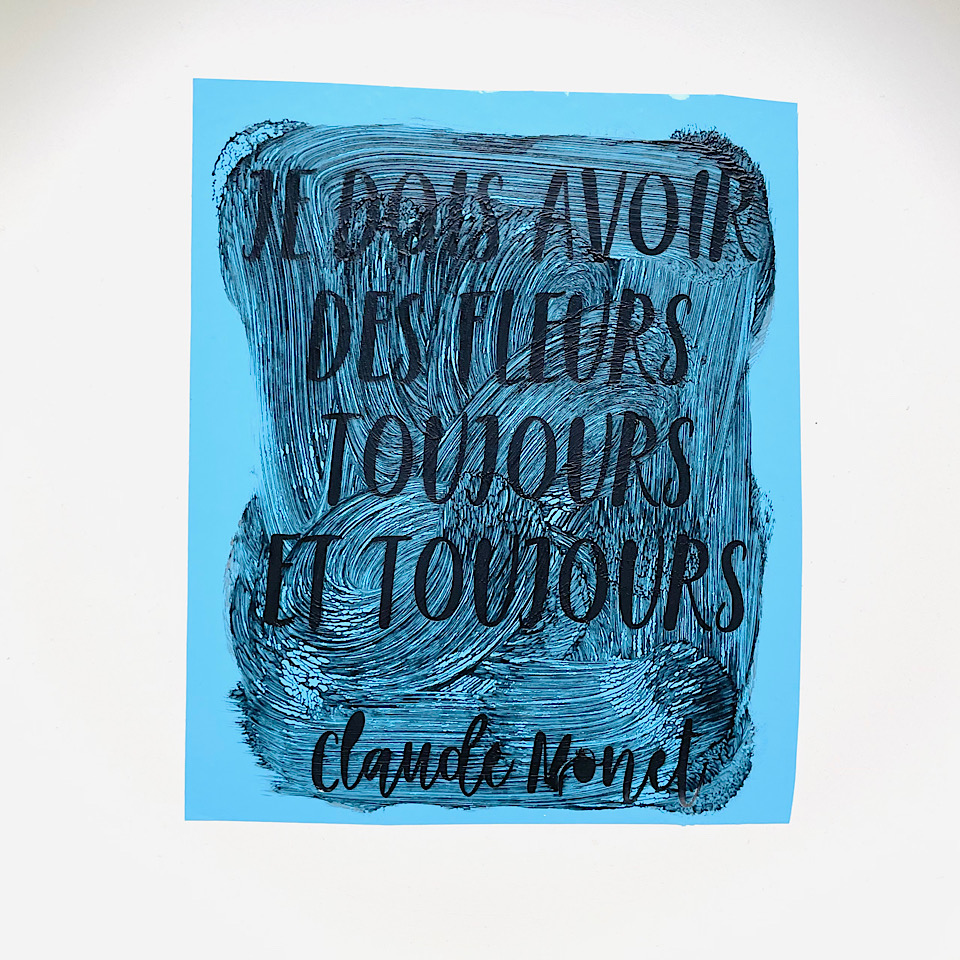 JE DOIS AVOIR
DES FLEURS
TOUJOURS
ET TOUJOURS
Claude Monet